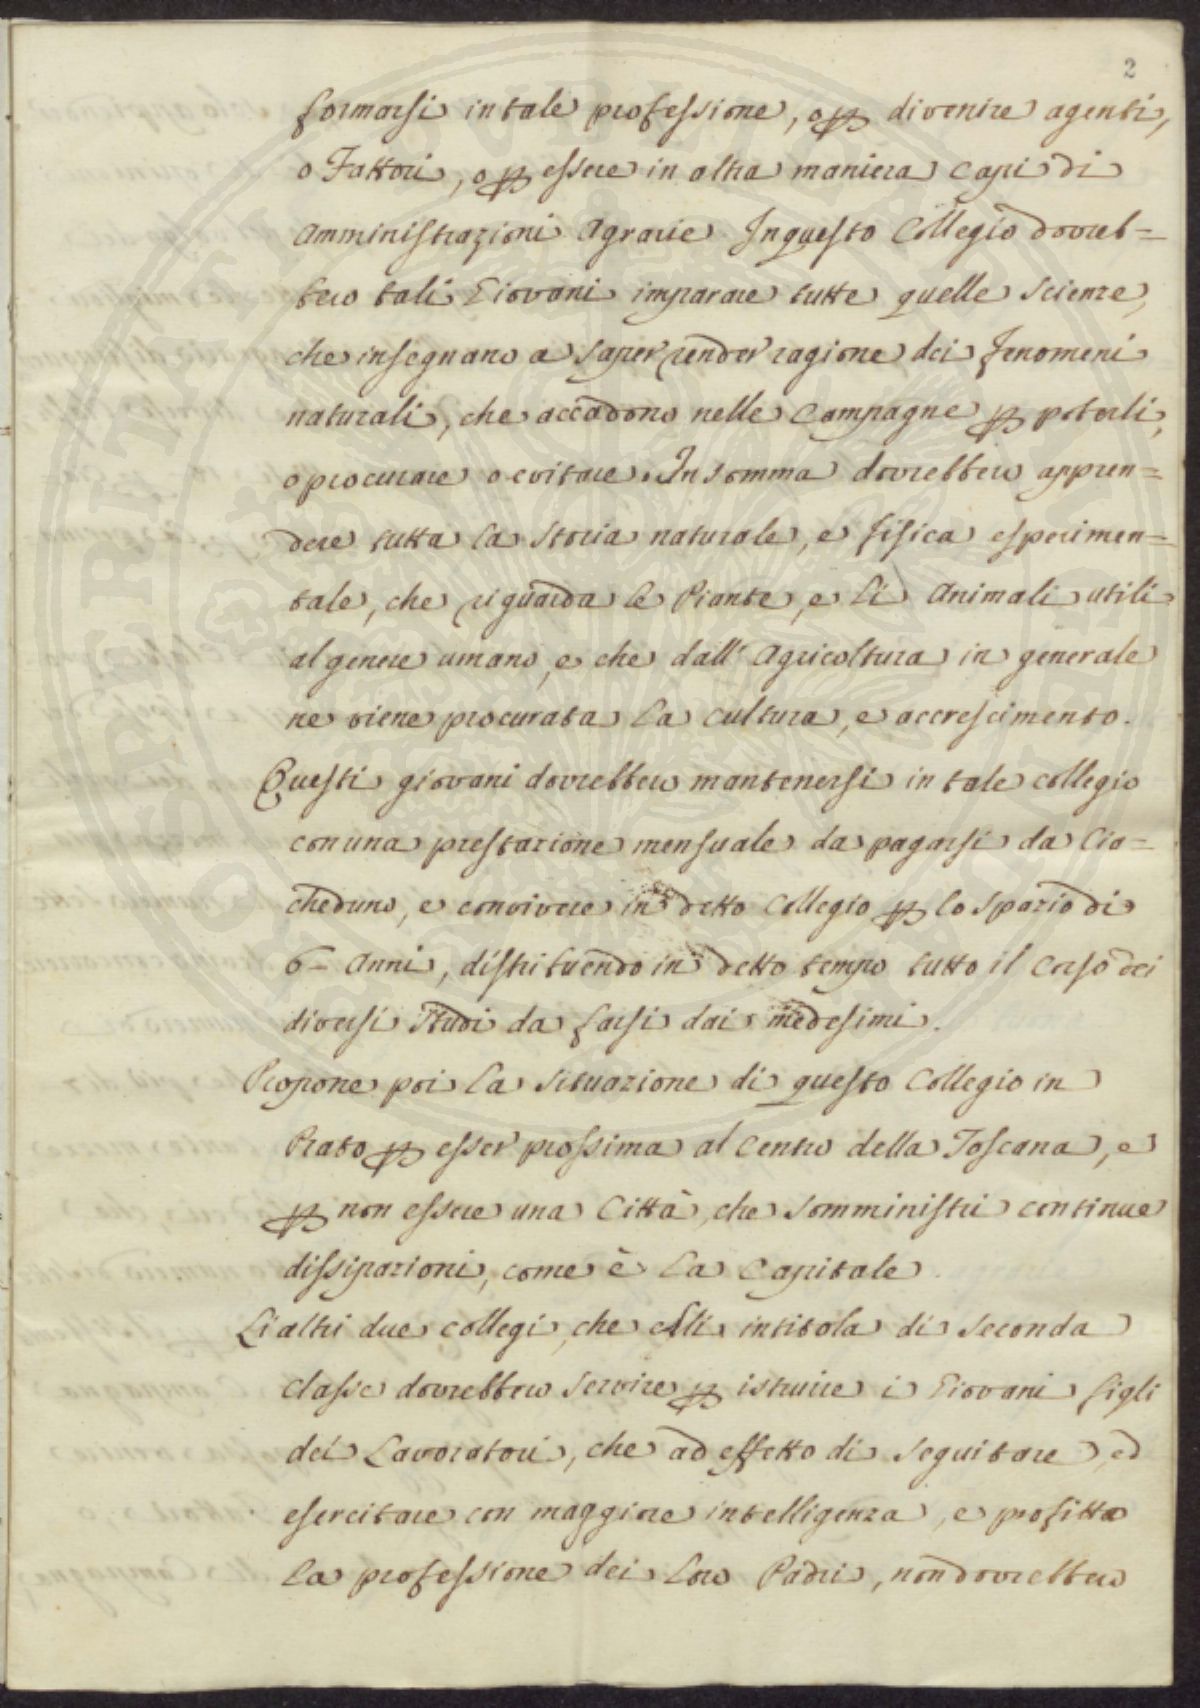 2
formarsi in tale professione, o p divenire agenti,
o Fattori, o p essere in altra maniera Capi di
Amministrazioni Agrarie. In questo Collegio dovreb=
bero tali Giovani imparare tutte quelle Scienze,
che insegnano a saper render ragione dei fenomeni
naturali, che accadono nelle Campagne p poterli,
o procurare o evitare. In somma dovrebbero appren=
dere tutta la Storia naturale, e fisica esperimen=
tale, che riguarda le Piante, e li Animali utili
al genere umano, e che dall' Agricoltura in generale
ne viene procurata la cultura, e accrescimento.
Questi giovani dovrebbero mantenersi in tale collegio
con una prestazione mensuale da pagarsi da Cia=
cheduno, e convivere in detto Collegio p lo spazio di
6= Anni, distribuendo in detto tempo tutto il Corso dei
diversi Studi da farsi dai medesimi.
Propone poi la situazione di questo Collegio in
Prato p esser prossima al Centro della Toscana, e
p non essere una Città, che somministri continue
dissipazioni, come è la Capitale.
Li altri due collegi, che esli intitola di seconda
classe dovrebbero servire p istruire i Giovani figli
dei Lavoratori, che ad effetto di seguitare, ed
esercitare con maggiore intelligenza, e profitto
la professione dei loro Padri, non dovrebbero